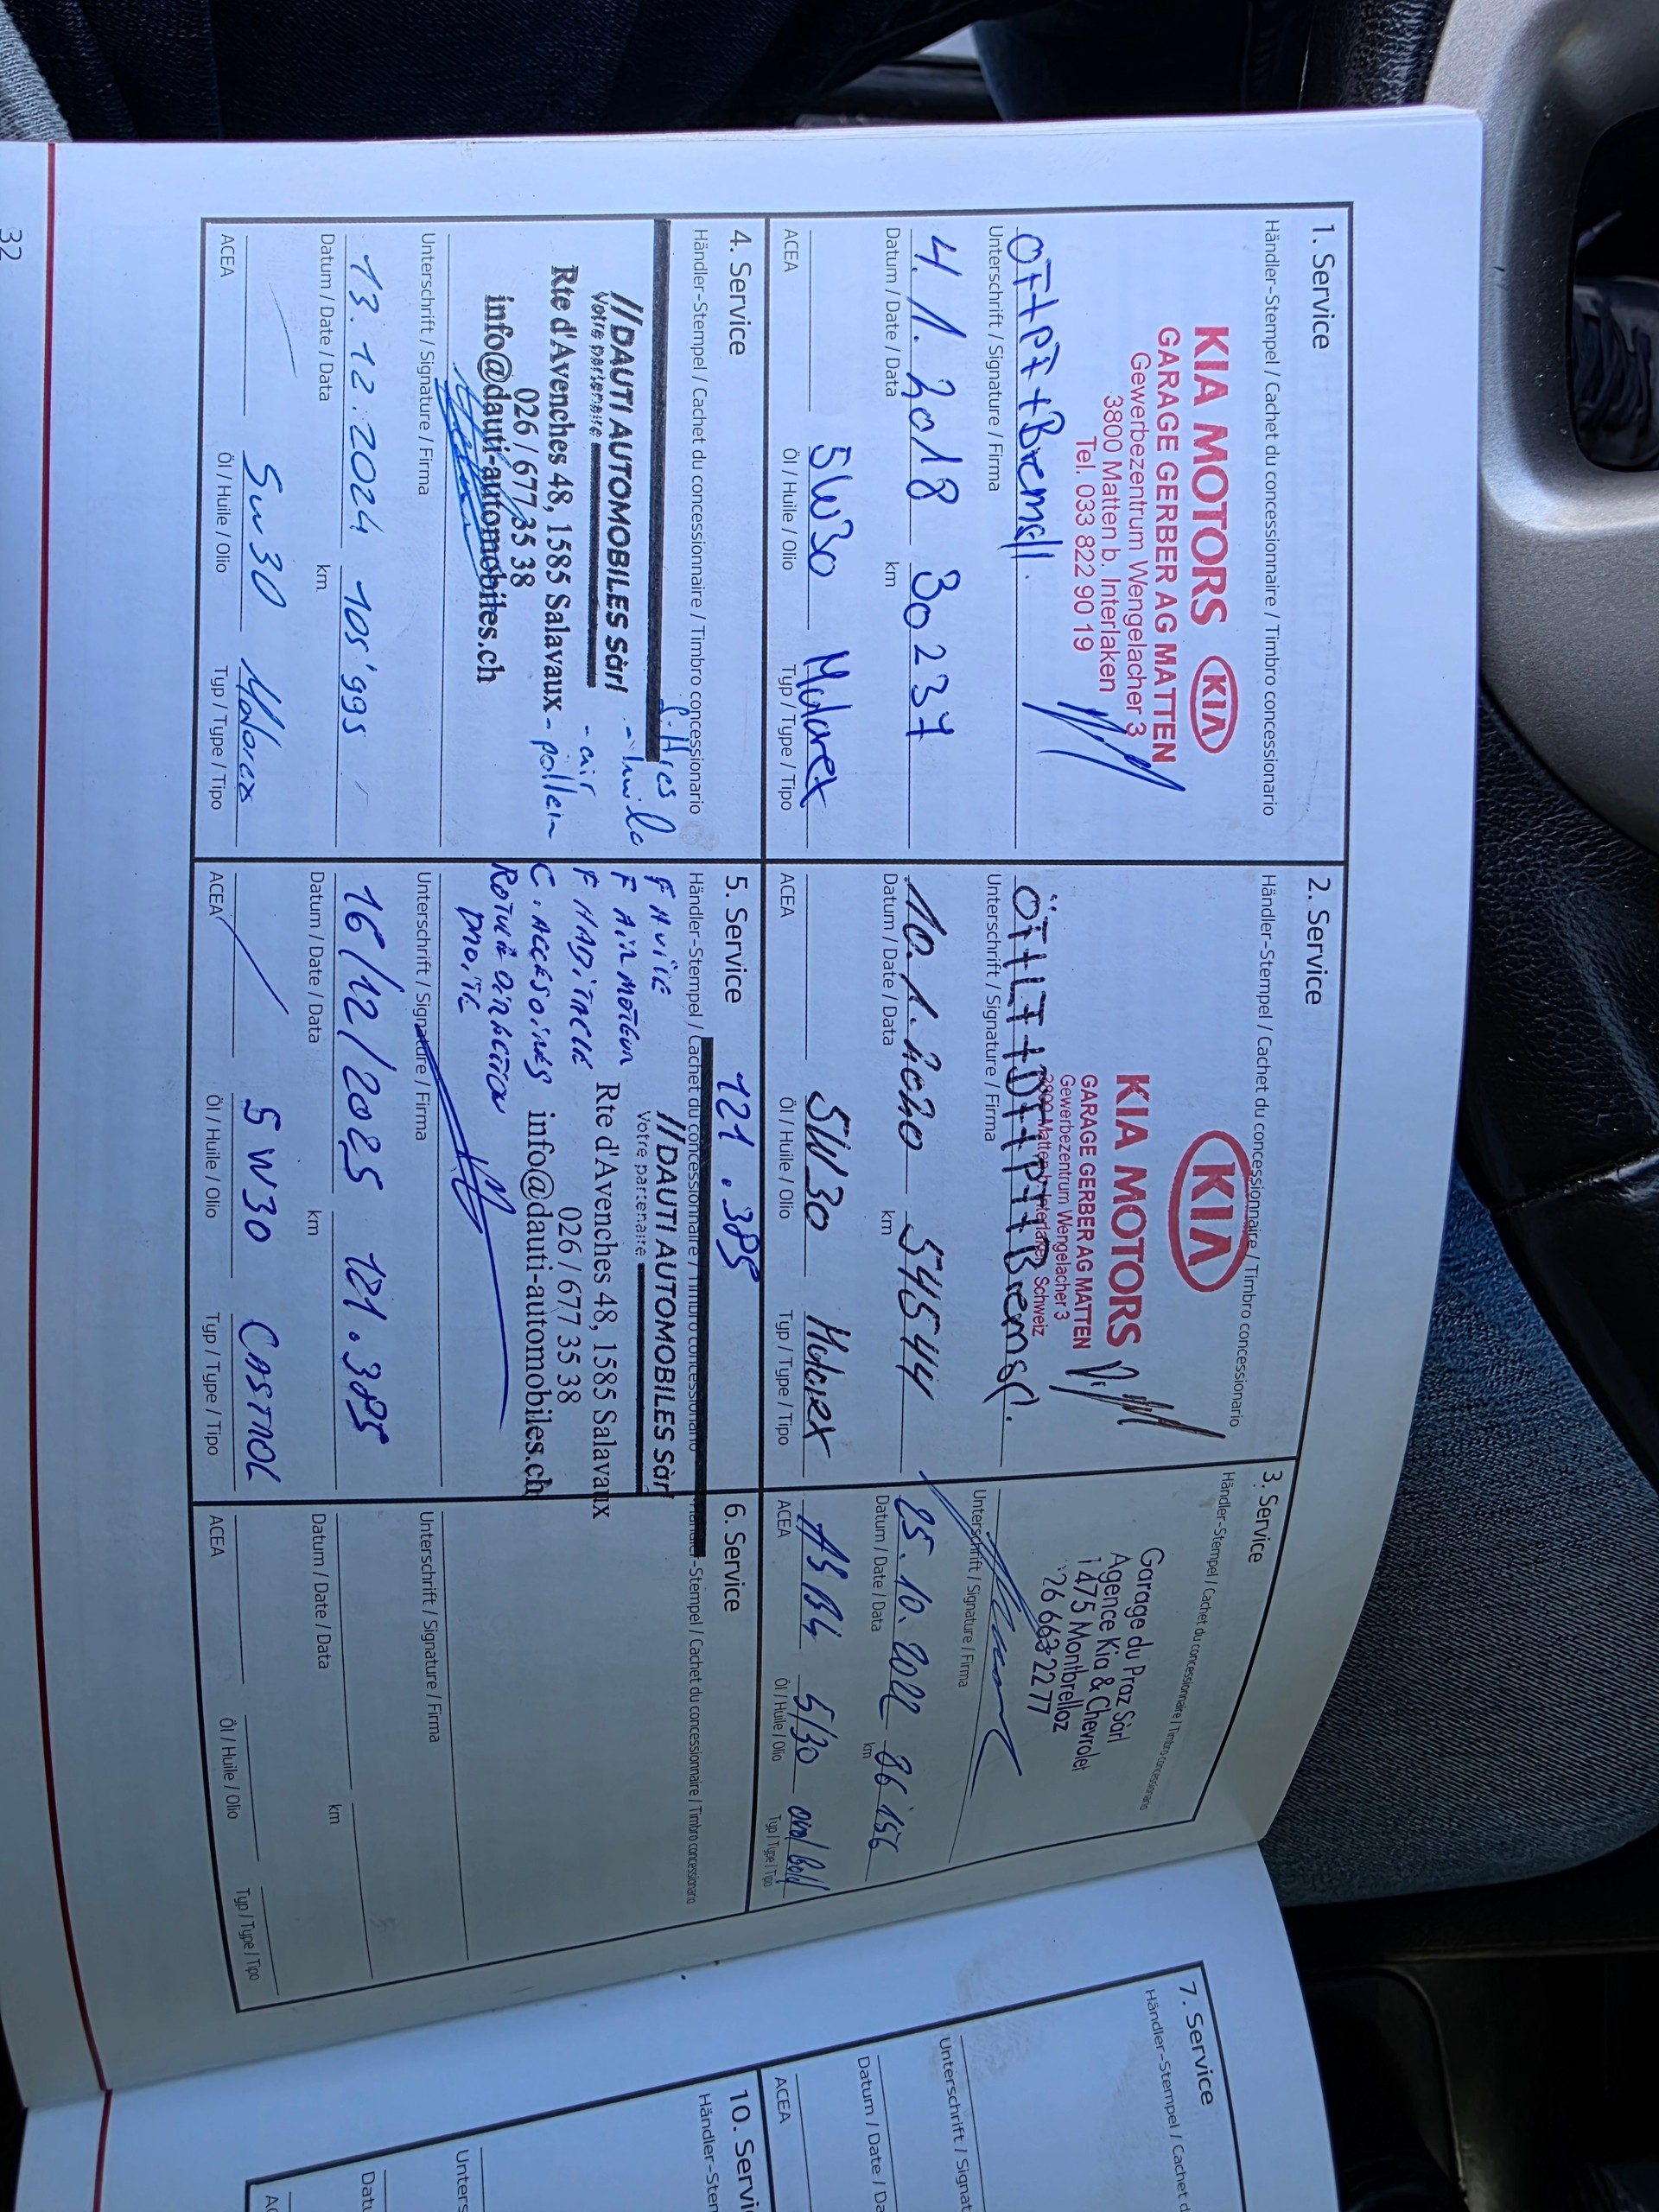 1. Service
Händler-Stempel / Cachet du concessionnaire / Timbro concessionario
KIA MOTORS KIA
GARAGE GERBER AG MATTEN
Gewerbezentrum Wengelacher 3
3800 Matten b. Interlaken
Tel. 033 822 90 19
ÖF+PF+Bremsfl.
Unterschrift / Signature / Firma
4.1.2018 30237
Datum / Date / Data km
5W30 Motorex
ACEA Öl / Huile / Olio Typ / Type / Tipo
2. Service
Händler-Stempel / Cachet du concessionnaire / Timbro concessionario
KIA
KIA MOTORS
GARAGE GERBER AG MATTEN
Gewerbezentrum Wengelacher 3
3800 Matten b. Interlaken Schweiz
ÖF+LF+DF+PF+Bremsfl.
Unterschrift / Signature / Firma
10.1.2020 54544
Datum / Date / Data km
5W30 Motorex
ACEA Öl / Huile / Olio Typ / Type / Tipo
3. Service
Händler-Stempel / Cachet du concessionnaire / Timbro concessionario
Garage du Praz Sàrl
Agence Kia & Chevrolet
1475 Montbrelloz
26 663 22 77
Unterschrift / Signature / Firma
25.10.2022 86'156
Datum / Date / Data km
5/30
ACEA Öl / Huile / Olio Typ / Type / Tipo
4. Service
Händler-Stempel / Cachet du concessionnaire / Timbro concessionario
//DAUTI AUTOMOBILES Sàrl
Votre partenaire
Rte d'Avenches 48, 1585 Salavaux
026 / 677 35 38
info@dauti-automobiles.ch
- huile
- air
- pollen
Unterschrift / Signature / Firma
13.12.2024 105'995
Datum / Date / Data km
5w30 Motorex
ACEA Öl / Huile / Olio Typ / Type / Tipo
5. Service 121.385
Händler-Stempel / Cachet du concessionnaire / Timbro concessionario
//DAUTI AUTOMOBILES Sàrl
Votre partenaire
Rte d'Avenches 48, 1585 Salavaux
026 / 677 35 38
info@dauti-automobiles.ch
F HUILE
F AIR MOTEUR
F HABITACLE
C. ACCESSOIRES
ROTULE DIRECTION
DROITE
Unterschrift / Signature / Firma
16/12/2025 121.385
Datum / Date / Data km
5W30 CASTROL
ACEA Öl / Huile / Olio Typ / Type / Tipo
6. Service
-Stempel / Cachet du concessionnaire / Timbro concessionario
Unterschrift / Signature / Firma
Datum / Date / Data km
ACEA Öl / Huile / Olio Typ / Type / Tipo
32
7. Service
Händler-Stempel / Cachet d
Unterschrift / Signat
Datum / Date / Da
ACEA
10. Servi
Händler-Sten
Unters
Datu